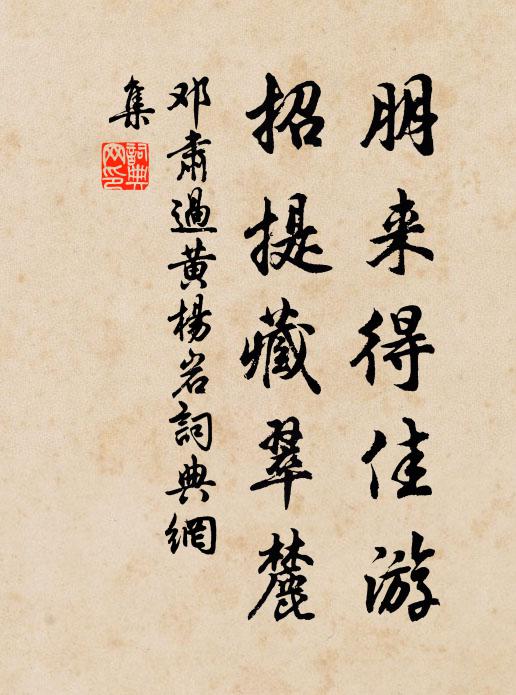 朋来得佳游
招提藏翠麓
邓肃過黄楊岩詞典網
集
詞典
网印